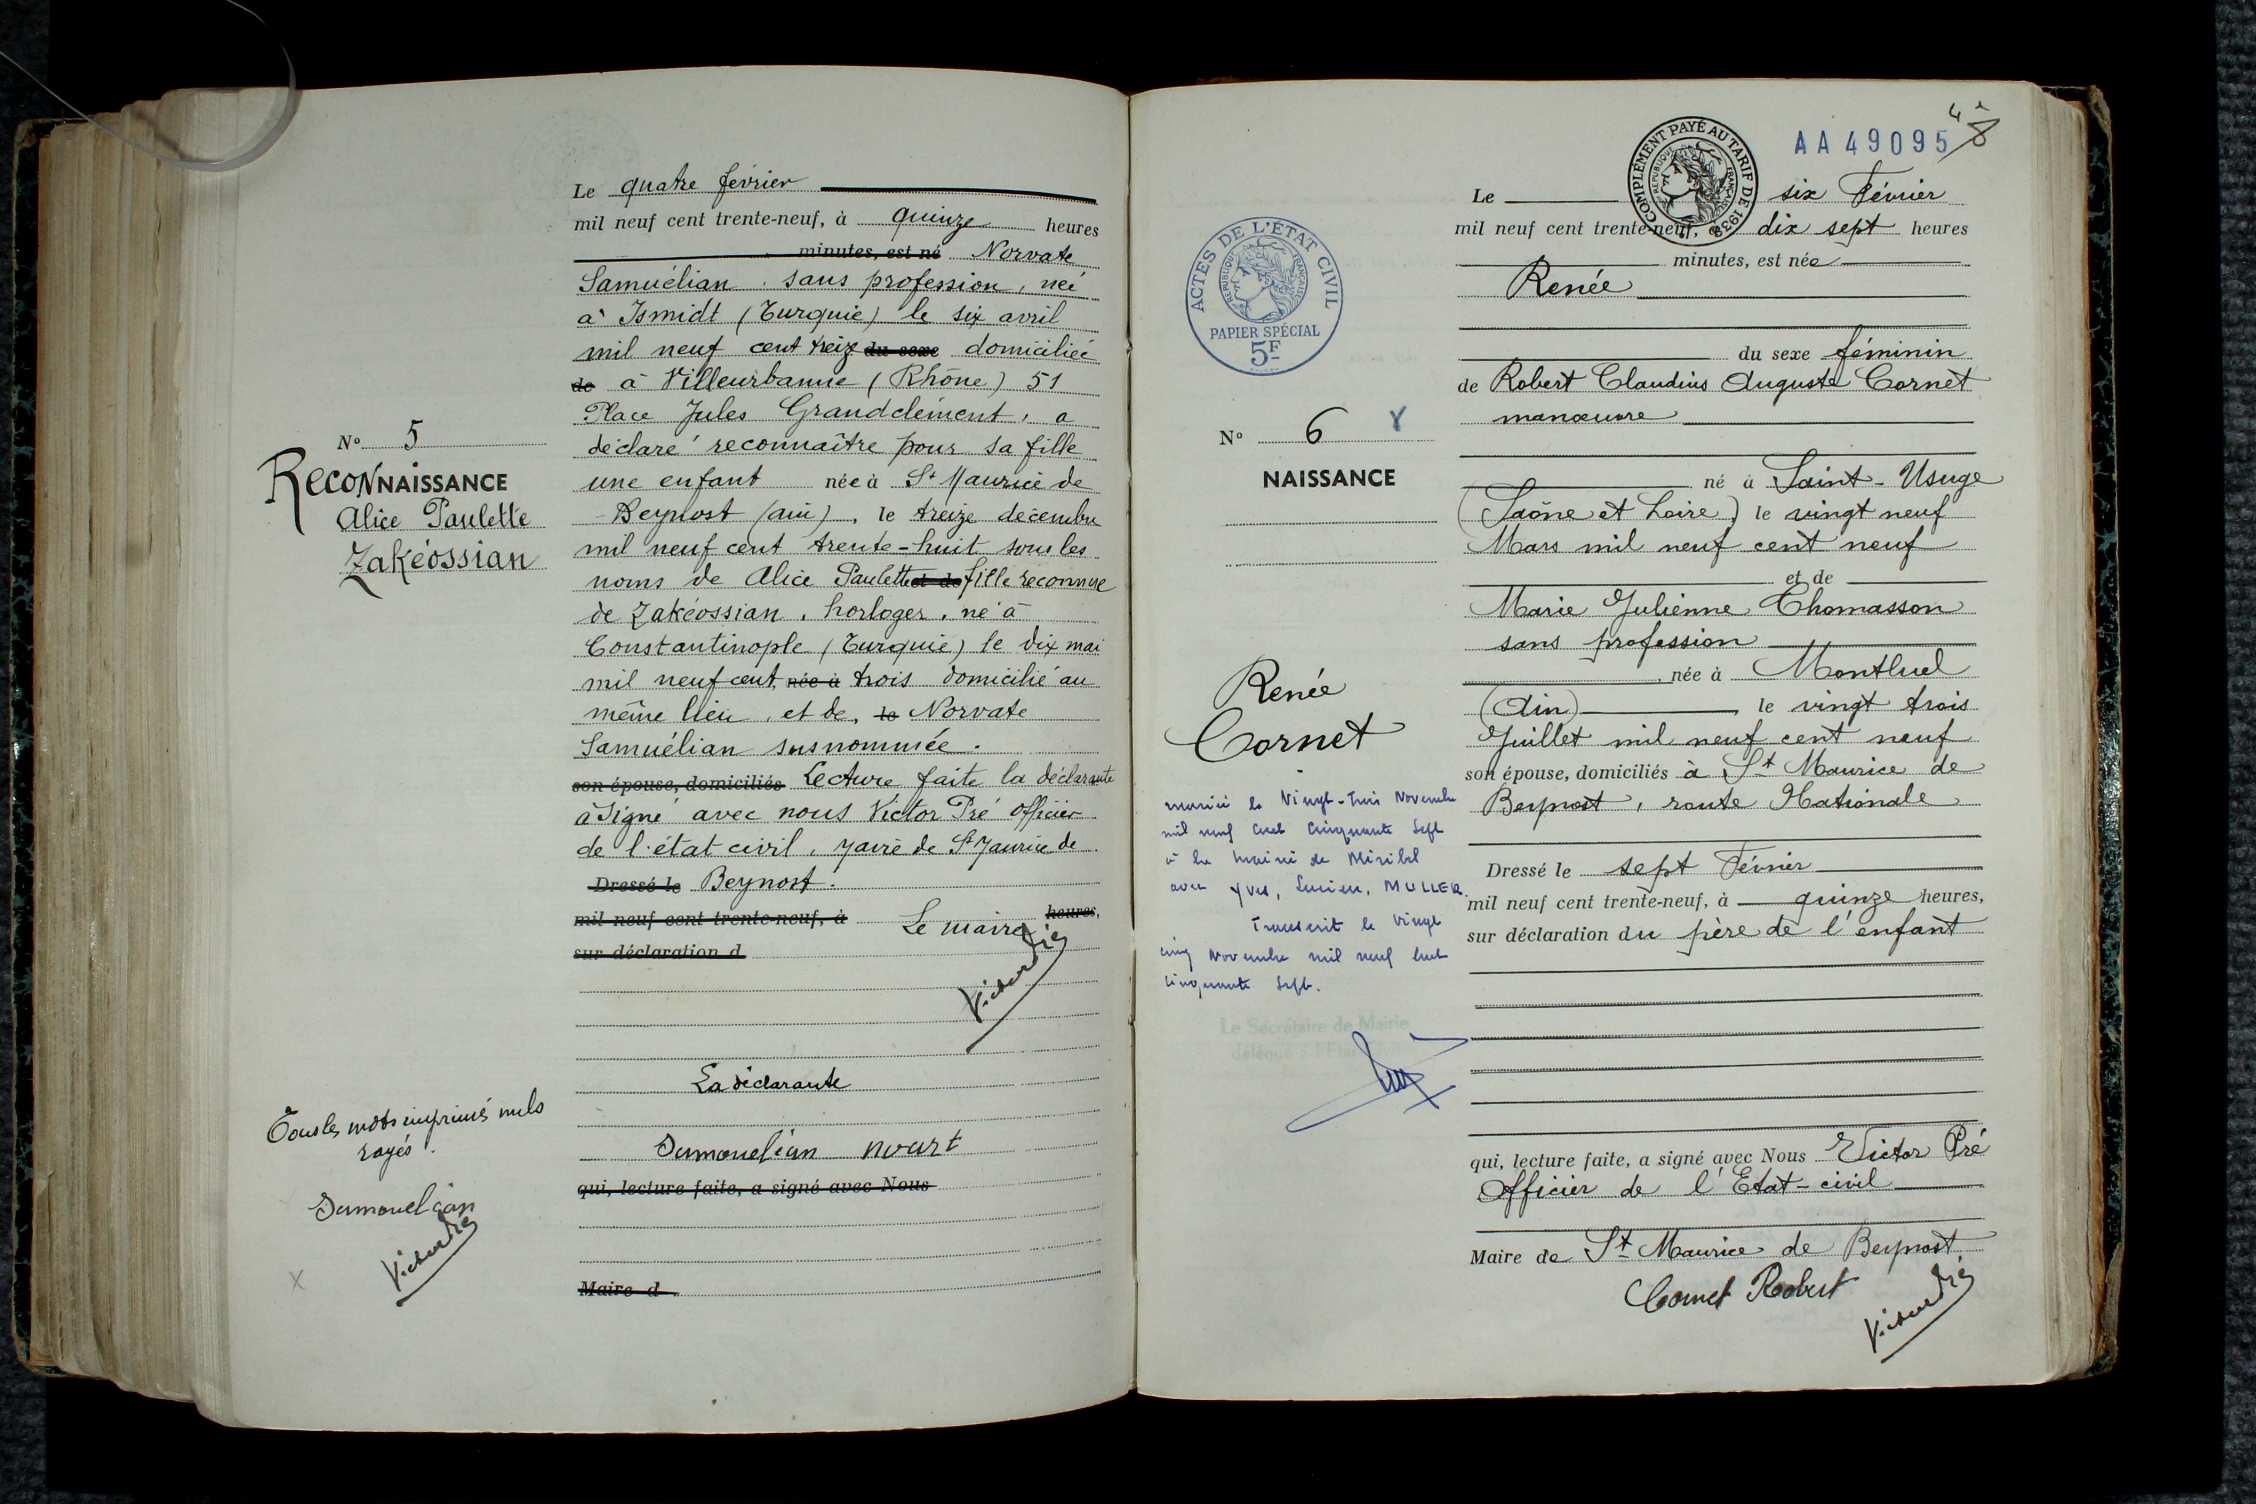 N° 5
RECONNAISSANCE
Alice Paulette
Zakéossian
Le quatre février
mil neuf cent trente-neuf, à quinze heures
minutes, est né Norvate
Samuélian. sans profession, née
à Ismidt (Turquie) le six avril
mil neuf cent treize du sexe domiciliée
de à Villeurbanne (Rhône) 51
Place Jules Grandclément, a
déclaré reconnaître pour sa fille
une enfant née à St Maurice de
Beynost (Ain), le treize décembre
mil neuf cent trente-huit sous les
noms de Alice Paulette et de fille reconnue
de Zakéossian, horloger, né à
Constantinople (Turquie) le dix mai
mil neuf cent née à trois domicilié au
même lieu, et de, le Norvate
Samuélian susnommée.
son épouse, domiciliés Lecture faite la déclarante
a signé avec nous Victor Pré Officier
de l'état civil, Maire de St Maurice de
Dressé le Beynost.
mil neuf cent trente-neuf, à Le maire heures,
sur déclaration d
Victor Pré
La déclarante
Samouelian nvart
qui, lecture faite, a signé avec Nous
Maire d
Tous les mots imprimés nuls
rayés.
Samouelian
Victor Pré
X
AA 49095
COMPLÉMENT PAYÉ AU TARIF DE 1938
RÉPUBLIQUE FRANÇAISE
ACTES DE L'ÉTAT CIVIL
RÉPUBLIQUE FRANÇAISE
PAPIER SPÉCIAL
5F
N° 6
NAISSANCE
Renée
Cornet
mariée le Vingt-Trois Novembre
mil neuf cent cinquante sept
à la Mairie de Miribel
avec Yves, Lucien, MULLER.
Transcrit le vingt
cinq Novembre mil neuf cent
cinquante sept.
Le Secrétaire de Mairie
délégué à l'Etat
Le six Février
mil neuf cent trente-neuf, à dix sept heures
minutes, est née
Renée
du sexe féminin
de Robert Claudius Auguste Cornet
manœuvre
né à Saint-Usuge
(Saône et Loire) le vingt neuf
Mars mil neuf cent neuf
et de
Marie Julienne Thomasson
sans profession
née à Montluel
(Ain) le vingt trois
Juillet mil neuf cent neuf
son épouse, domiciliés à St Maurice de
Beynost, route Nationale
Dressé le sept Février
mil neuf cent trente-neuf, à quinze heures,
sur déclaration du père de l'enfant
qui, lecture faite, a signé avec Nous Victor Pré
Officier de l'Etat-civil
Maire de St Maurice de Beynost.
Cornet Robert
Victor Pré